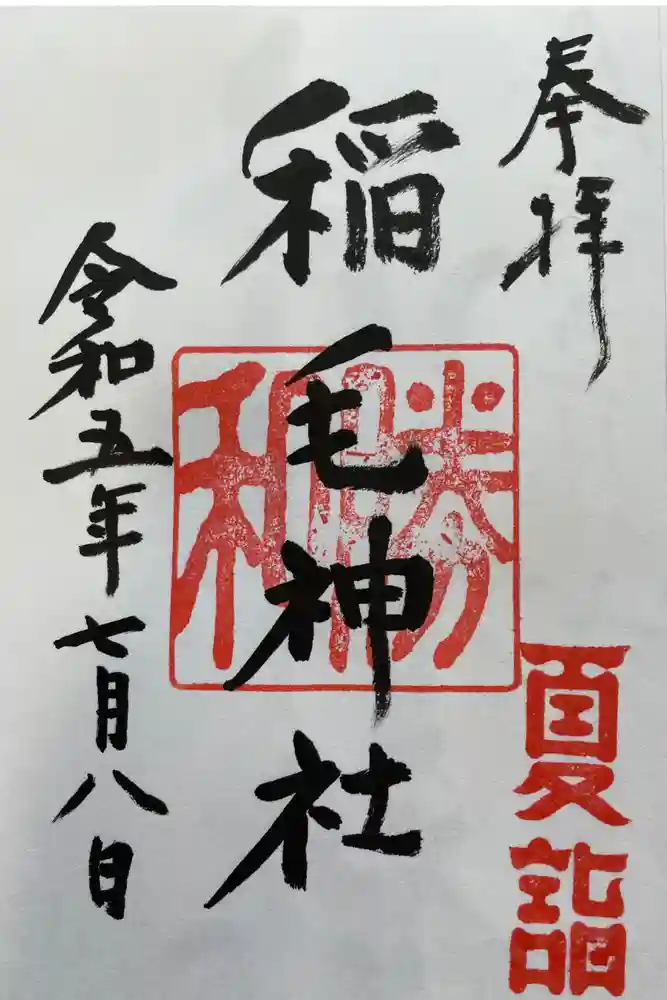 奉拝
夏詣
稲毛神社
勝利
令和五年七月八日